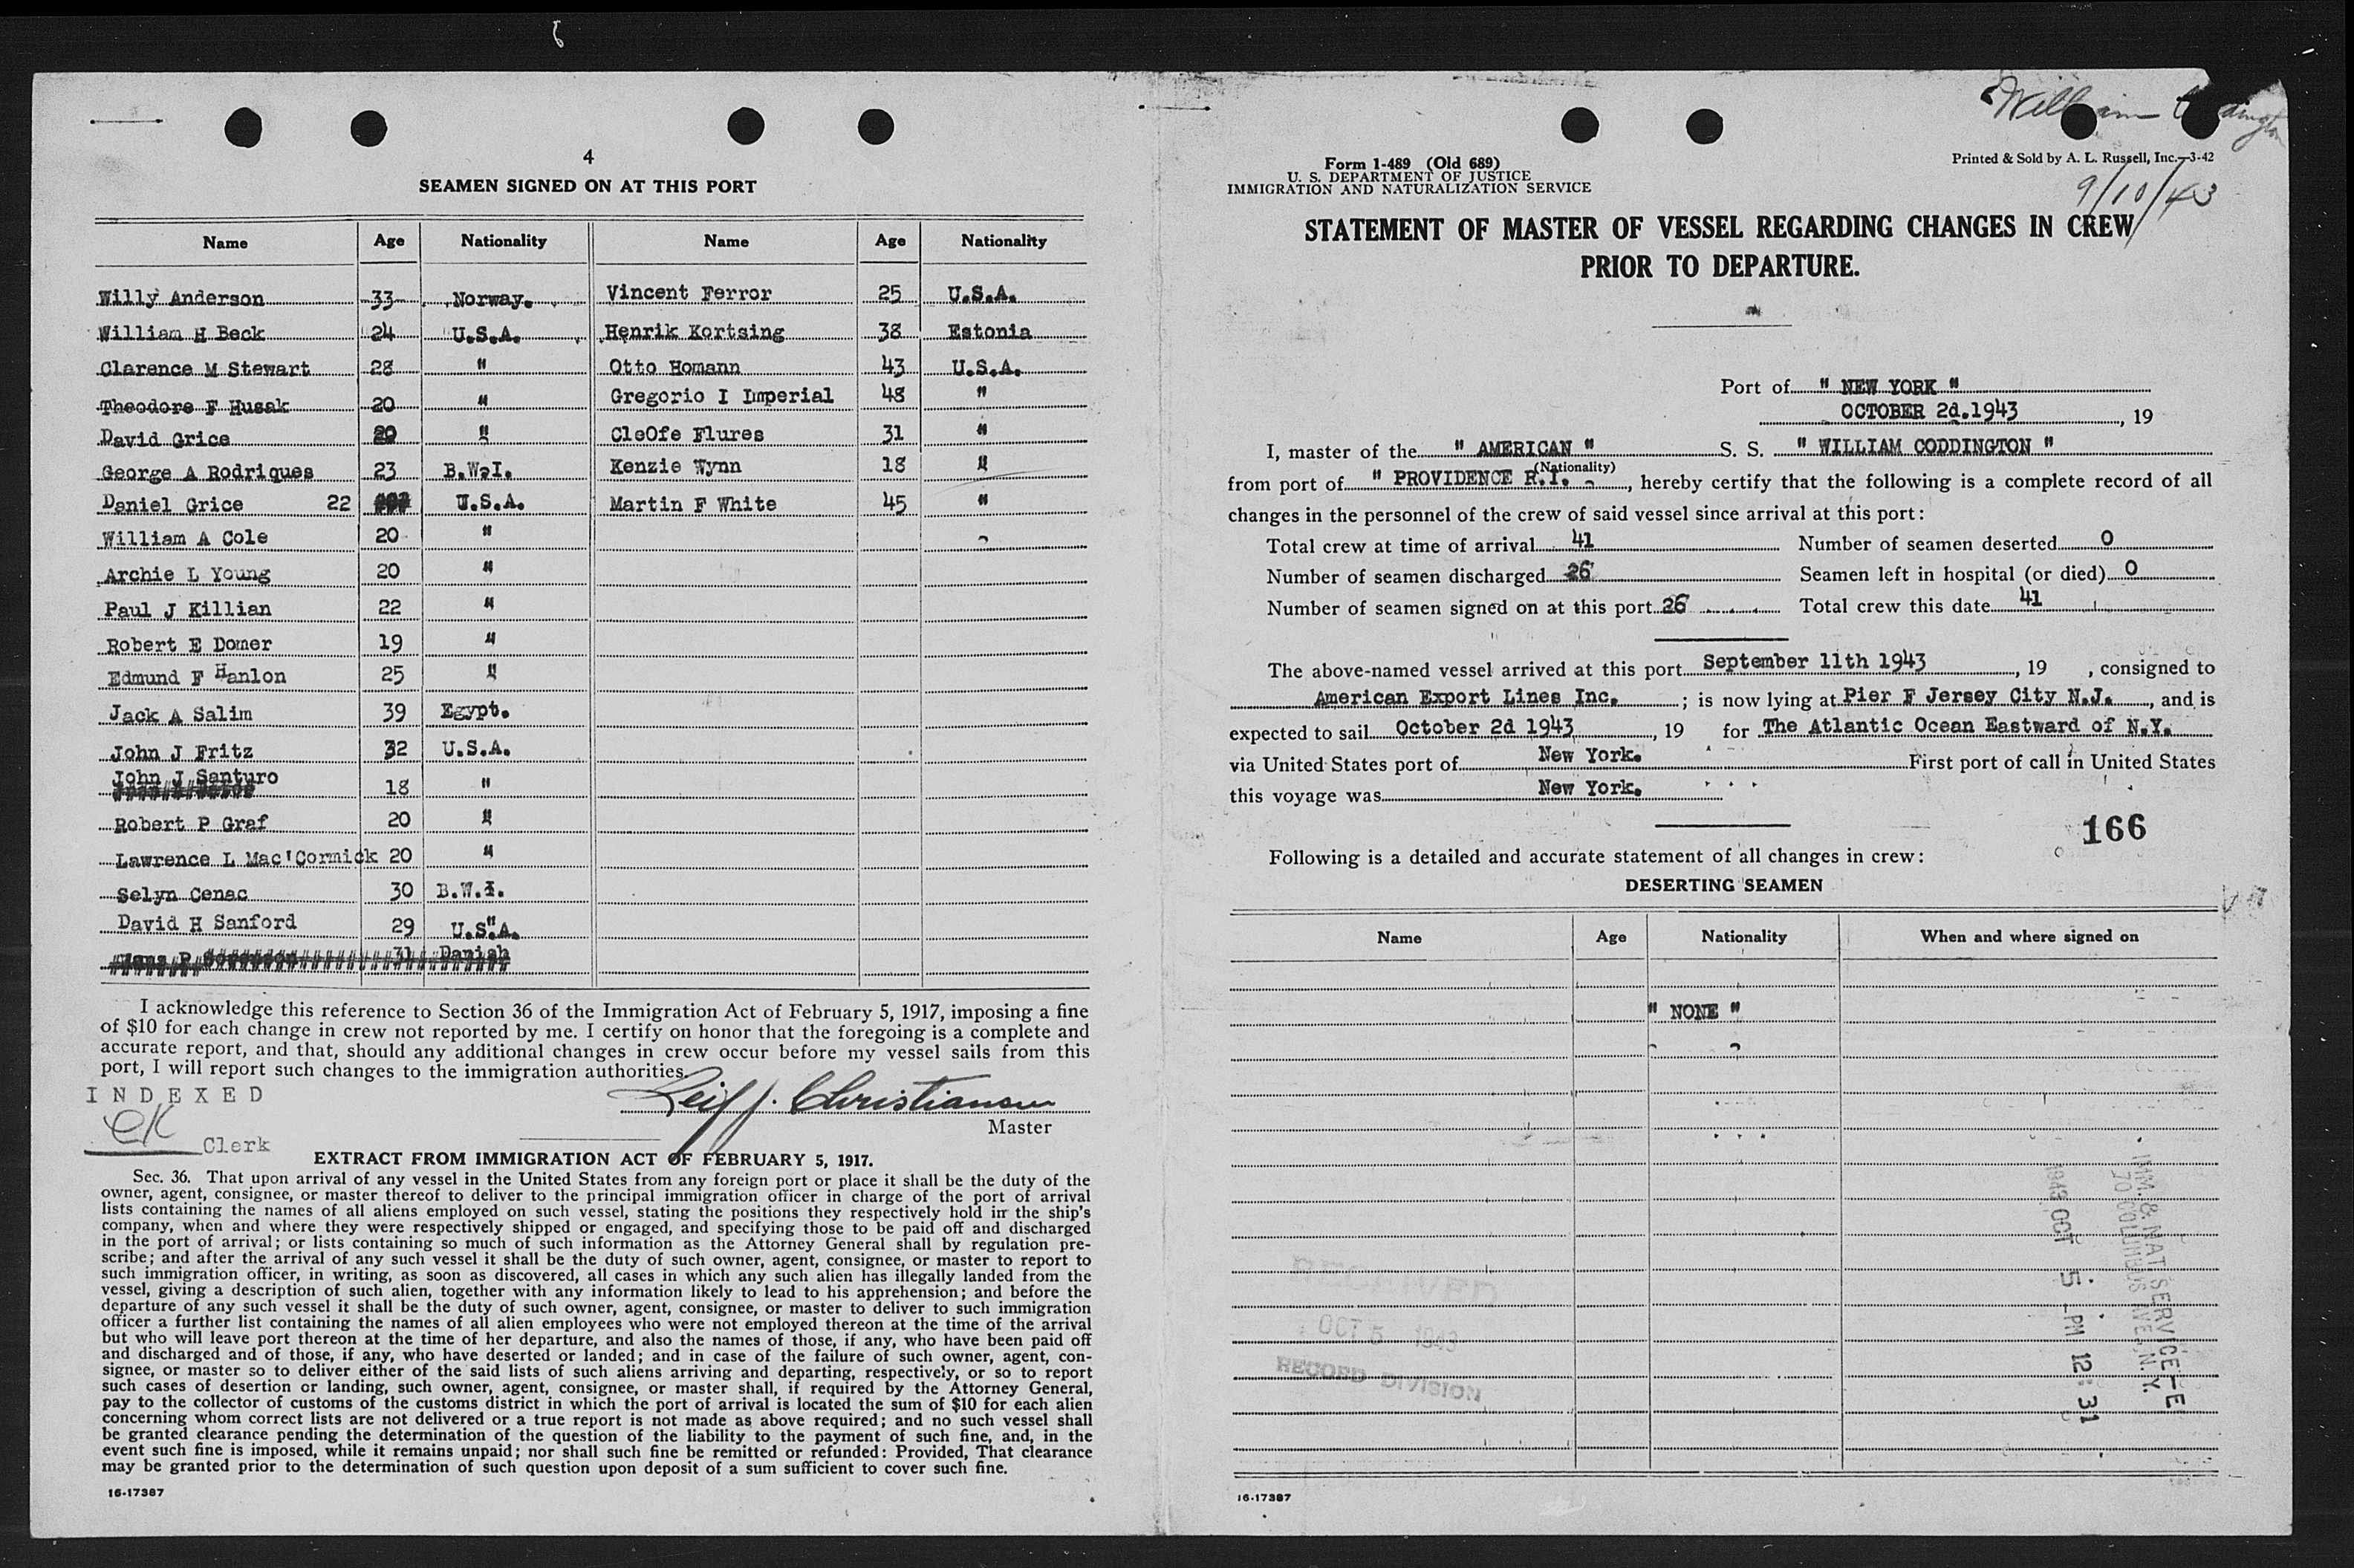 4
SEAMEN SIGNED ON AT THIS PORT
Name Age Nationality Name Age Nationality
Willy Anderson 33 Norway. Vincent Ferror 25 U.S.A.
William H Beck 24 U.S.A. Henrik Kortsing 38 Estonia
Clarence M Stewart 28 " Otto Homann 43 U.S.A.
Theodore F Husak 20 " Gregorio I Imperial 48 "
David Grice 20 " CleOfe Flures 31 "
George A Rodriques 23 B.W.I. Kenzie Wynn 18 "
Daniel Grice 22 U.S.A. Martin F White 45 "
William A Cole 20 "
Archie L Young 20 "
Paul J Killian 22 "
Robert E Domer 19 "
Edmund F Hanlon 25 "
Jack A Salim 39 Egypt.
John J Fritz 32 U.S.A.
John J Santuro 18 "
Robert P Graf 20 "
Lawrence L Mac'Cormick 20 "
Selyn Cenac 30 B.W.I.
David H Sanford 29 U.S.A.
31 Danish
I acknowledge this reference to Section 36 of the Immigration Act of February 5, 1917, imposing a fine
of $10 for each change in crew not reported by me. I certify on honor that the foregoing is a complete and
accurate report, and that, should any additional changes in crew occur before my vessel sails from this
port, I will report such changes to the immigration authorities.
INDEXED
EK Clerk
Leif J. Christiansen
Master
EXTRACT FROM IMMIGRATION ACT OF FEBRUARY 5, 1917.
Sec. 36. That upon arrival of any vessel in the United States from any foreign port or place it shall be the duty of the
owner, agent, consignee, or master thereof to deliver to the principal immigration officer in charge of the port of arrival
lists containing the names of all aliens employed on such vessel, stating the positions they respectively hold in the ship's
company, when and where they were respectively shipped or engaged, and specifying those to be paid off and discharged
in the port of arrival; or lists containing so much of such information as the Attorney General shall by regulation pre-
scribe; and after the arrival of any such vessel it shall be the duty of such owner, agent, consignee, or master to report to
such immigration officer, in writing, as soon as discovered, all cases in which any such alien has illegally landed from the
vessel, giving a description of such alien, together with any information likely to lead to his apprehension; and before the
departure of any such vessel it shall be the duty of such owner, agent, consignee, or master to deliver to such immigration
officer a further list containing the names of all alien employees who were not employed thereon at the time of the arrival
but who will leave port thereon at the time of her departure, and also the names of those, if any, who have been paid off
and discharged and of those, if any, who have deserted or landed; and in case of the failure of such owner, agent, con-
signee, or master so to deliver either of the said lists of such aliens arriving and departing, respectively, or so to report
such cases of desertion or landing, such owner, agent, consignee, or master shall, if required by the Attorney General,
pay to the collector of customs of the customs district in which the port of arrival is located the sum of $10 for each alien
concerning whom correct lists are not delivered or a true report is not made as above required; and no such vessel shall
be granted clearance pending the determination of the question of the liability to the payment of such fine, and, in the
event such fine is imposed, while it remains unpaid; nor shall such fine be remitted or refunded: Provided, That clearance
may be granted prior to the determination of such question upon deposit of a sum sufficient to cover such fine.
16-17387
William Coddington
Form 1-489 (Old 689)
U. S. DEPARTMENT OF JUSTICE
IMMIGRATION AND NATURALIZATION SERVICE
Printed & Sold by A. L. Russell, Inc.—3-42
9/10/43
STATEMENT OF MASTER OF VESSEL REGARDING CHANGES IN CREW
PRIOR TO DEPARTURE.
Port of " NEW YORK "
OCTOBER 2d.1943, 19
I, master of the " AMERICAN " S. S. " WILLIAM CODDINGTON "
(Nationality)
from port of " PROVIDENCE R.I. , hereby certify that the following is a complete record of all
changes in the personnel of the crew of said vessel since arrival at this port:
Total crew at time of arrival 41 Number of seamen deserted 0
Number of seamen discharged 26 Seamen left in hospital (or died) 0
Number of seamen signed on at this port 26 Total crew this date 41
The above-named vessel arrived at this port September 11th 1943, 19 , consigned to
American Export Lines Inc. ; is now lying at Pier F Jersey City N.J. , and is
expected to sail October 2d 1943, 19 for The Atlantic Ocean Eastward of N.Y.
via United States port of New York. First port of call in United States
this voyage was New York.
166
Following is a detailed and accurate statement of all changes in crew:
DESERTING SEAMEN
Name Age Nationality When and where signed on
" NONE "
RECEIVED
OCT 5 1943
RECORD DIVISION
IMM. & NAT. SERVICE-E
70 COLUMBUS AVE., N.Y.
1943 OCT 5 PM 12:31
16-17387